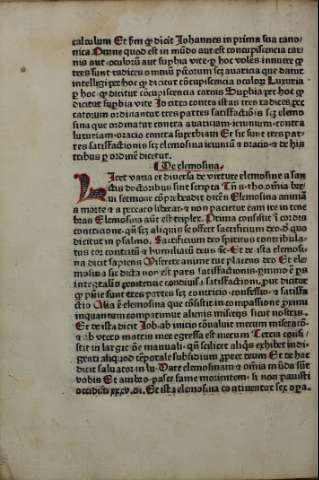 calculum Et hm qd dicit Johannes in prima sua cano
nica Omne quod est in mūdo aut est concupiscencia car
nis aut oculorū aut suꝑbia vite ꝑ hoc volēs innuere ꝙ
tres sunt radices omniū pctōrum sez auaricia que datur
intelligi ꝑ hoc ꝙ dicitur concupiscencia oculorū Luxuria
ꝑ hoc ꝙ dicitur cōcupiscencia carnis Suꝑbia ꝑ hoc ꝙ
dicitur suꝑbia vite Jo cōtra istas tres radices pec
catorum ordinantur tres partes satisfactiōis sez elemo
sina que ordinatur contra auariciam ieiunium contra
luxuriam oracio contra suꝑbiam Et sic sunt tres par
tes satisfactionis sez elemosina ieiuniū ⁊ oracio ⁊ de his
tribus ꝑ ordinē dicetur.
De elemosina
Licet varia et diuersa de virtute elemosine a san
ctis doctoribus sint scripta Tn̄ tho. omnia bre
ui sermone cōprehendit dicēs Elemosina animā
a morte ⁊ a peccato liberat ⁊ non pacietur eam ire in tene
bras Elemosina aūt est triplex Prima consistit ī cordis
contricione. qn̄ sez aliquis se offert sacrificium deo ꝙ quo
dicitur in psalmo. Sacrificium deo spiritus contribula
tus cor contritū ⁊ humiliatū deus Et de ista elemosi
na dicit sapiens Miserere anime tue placens deo Et ele
mosina sic dicta non est pars satisfactionis
integralis penitencie satisfactionem. put dicitur
ꝙ pn̄ie sunt tres partes sez contricio confessio ⁊ satisfa
ctio Alia ē elemosina que cōsistit in compassione primi
inquantum compatimur alienis miseriis sicut nostris
Et de ista dicit Job. ab inicio cōualuit mecum miseracō
⁊ ab vtero matris mee egressa est mecum Tercia consi
stit in largicōe manuali. qn̄ scilicet aliqs exhibet indi
genti aliquod tēporale subsidium ꝓpter deum Et de hac
dicit saluator in lu. Date elemosinam ⁊ omnia mūda sūt
vobis Et ambro. pasce fame morientem. si non pauisti
occidisti xxxv. di. Et ista elemosina continentur sex oꝑa.